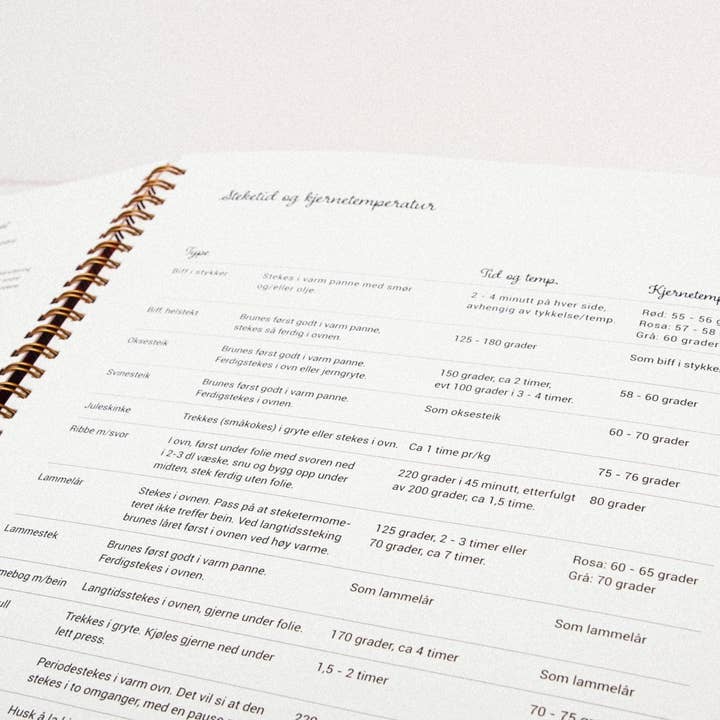 Steketid og kjernetemperatur
Type
Tid og temp.
Biff i stykker
Stekes i varm panne med smør
og/eller olje.
2 - 4 minutt på hver side,
avhengig av tykkelse/temp.
Rød: 55 - 56 g
Rosa: 57 - 58
Grå: 60 grader
Biff, helstekt
Brunes først godt i varm panne,
stekes så ferdig i ovnen.
125 - 180 grader
Som biff i
Oksesteik
Brunes først godt i varm panne.
Ferdigstekes i ovn eller jerngryte.
150 grader, ca 2 timer,
evt 100 grader i 3 - 4 timer.
58 - 60 grader
Svinesteik
Brunes først godt i varm panne.
Ferdigstekes i ovnen.
Som oksesteik
60 - 70 grader
Juleskinke
Trekkes (småkokes) i gryte eller stekes i ovn.
Ca 1 time pr/kg
75 - 76 grader
Ribbe m/svor
I ovn, først under folie med svoren ned
i 2-3 dl væske, snu og bygg opp under
midten, stek ferdig uten folie.
220 grader i 45 minutt, etterfulgt
av 200 grader, ca 1,5 time.
80 grader
Lammelår
Stekes i ovnen. Pass på at steketermome-
teret ikke treffer bein. Ved langtidssteking
brunes låret først i ovnen ved høy varme.
125 grader, 2 - 3 timer eller
70 grader, ca 7 timer.
Rosa: 60 - 65 grader
Grå: 70 grader
Lammestek
Brunes først godt i varm panne.
Ferdigstekes i ovnen.
Som lammelår
Som lammelår
m/bein
Langtidsstekes i ovnen, gjerne under folie.
170 grader, ca 4 timer
Som lammelår
Trekkes i gryte. Kjøles gjerne ned under
lett press.
1,5 - 2 timer
70 - 75
Periodestekes i varm ovn. Det vil si at den
stekes i to omganger, med en pause
220
Husk å